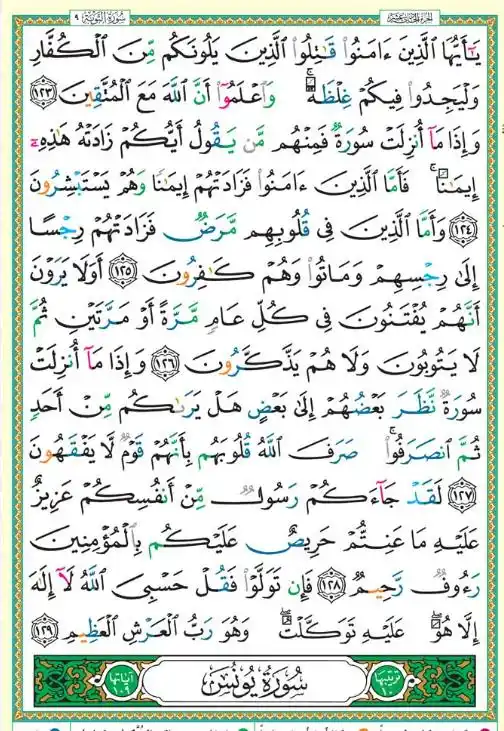 سورة التوبة ٩
يَـٰٓأَيُّهَا ٱلَّذِينَ ءَامَنُوا۟ قَـٰتِلُوا۟ ٱلَّذِينَ يَلُونَكُم مِّنَ ٱلْكُفَّارِ
وَلْيَجِدُوا۟ فِيكُمْ غِلْظَةً ۚ وَٱعْلَمُوٓا۟ أَنَّ ٱللَّهَ مَعَ ٱلْمُتَّقِينَ ١٢٣
وَإِذَا مَآ أُنزِلَتْ سُورَةٌ فَمِنْهُم مَّن يَقُولُ أَيُّكُمْ زَادَتْهُ هَـٰذِهِۦٓ
إِيمَـٰنًا ۚ فَأَمَّا ٱلَّذِينَ ءَامَنُوا۟ فَزَادَتْهُمْ إِيمَـٰنًا وَهُمْ يَسْتَبْشِرُونَ
١٢٤ وَأَمَّا ٱلَّذِينَ فِى قُلُوبِهِم مَّرَضٌ فَزَادَتْهُمْ رِجْسًا
إِلَىٰ رِجْسِهِمْ وَمَاتُوا۟ وَهُمْ كَـٰفِرُونَ ١٢٥ أَوَلَا يَرَوْنَ
أَنَّهُمْ يُفْتَنُونَ فِى كُلِّ عَامٍ مَّرَّةً أَوْ مَرَّتَيْنِ ثُمَّ
لَا يَتُوبُونَ وَلَا هُمْ يَذَّكَّرُونَ ١٢٦ وَإِذَا مَآ أُنزِلَتْ
سُورَةٌ نَّظَرَ بَعْضُهُمْ إِلَىٰ بَعْضٍ هَلْ يَرَىٰكُم مِّنْ أَحَدٍ
ثُمَّ ٱنصَرَفُوا۟ ۚ صَرَفَ ٱللَّهُ قُلُوبَهُم بِأَنَّهُمْ قَوْمٌ لَّا يَفْقَهُونَ
١٢٧ لَقَدْ جَآءَكُمْ رَسُولٌ مِّنْ أَنفُسِكُمْ عَزِيزٌ
عَلَيْهِ مَا عَنِتُّمْ حَرِيصٌ عَلَيْكُم بِٱلْمُؤْمِنِينَ
رَءُوفٌ رَّحِيمٌ ١٢٨ فَإِن تَوَلَّوْا۟ فَقُلْ حَسْبِىَ ٱللَّهُ لَآ إِلَـٰهَ
إِلَّا هُوَ ۖ عَلَيْهِ تَوَكَّلْتُ ۖ وَهُوَ رَبُّ ٱلْعَرْشِ ٱلْعَظِيمِ ١٢٩
ترتيبها ١٠ سُورَةُ يُونُسَ آياتها ١٠٩